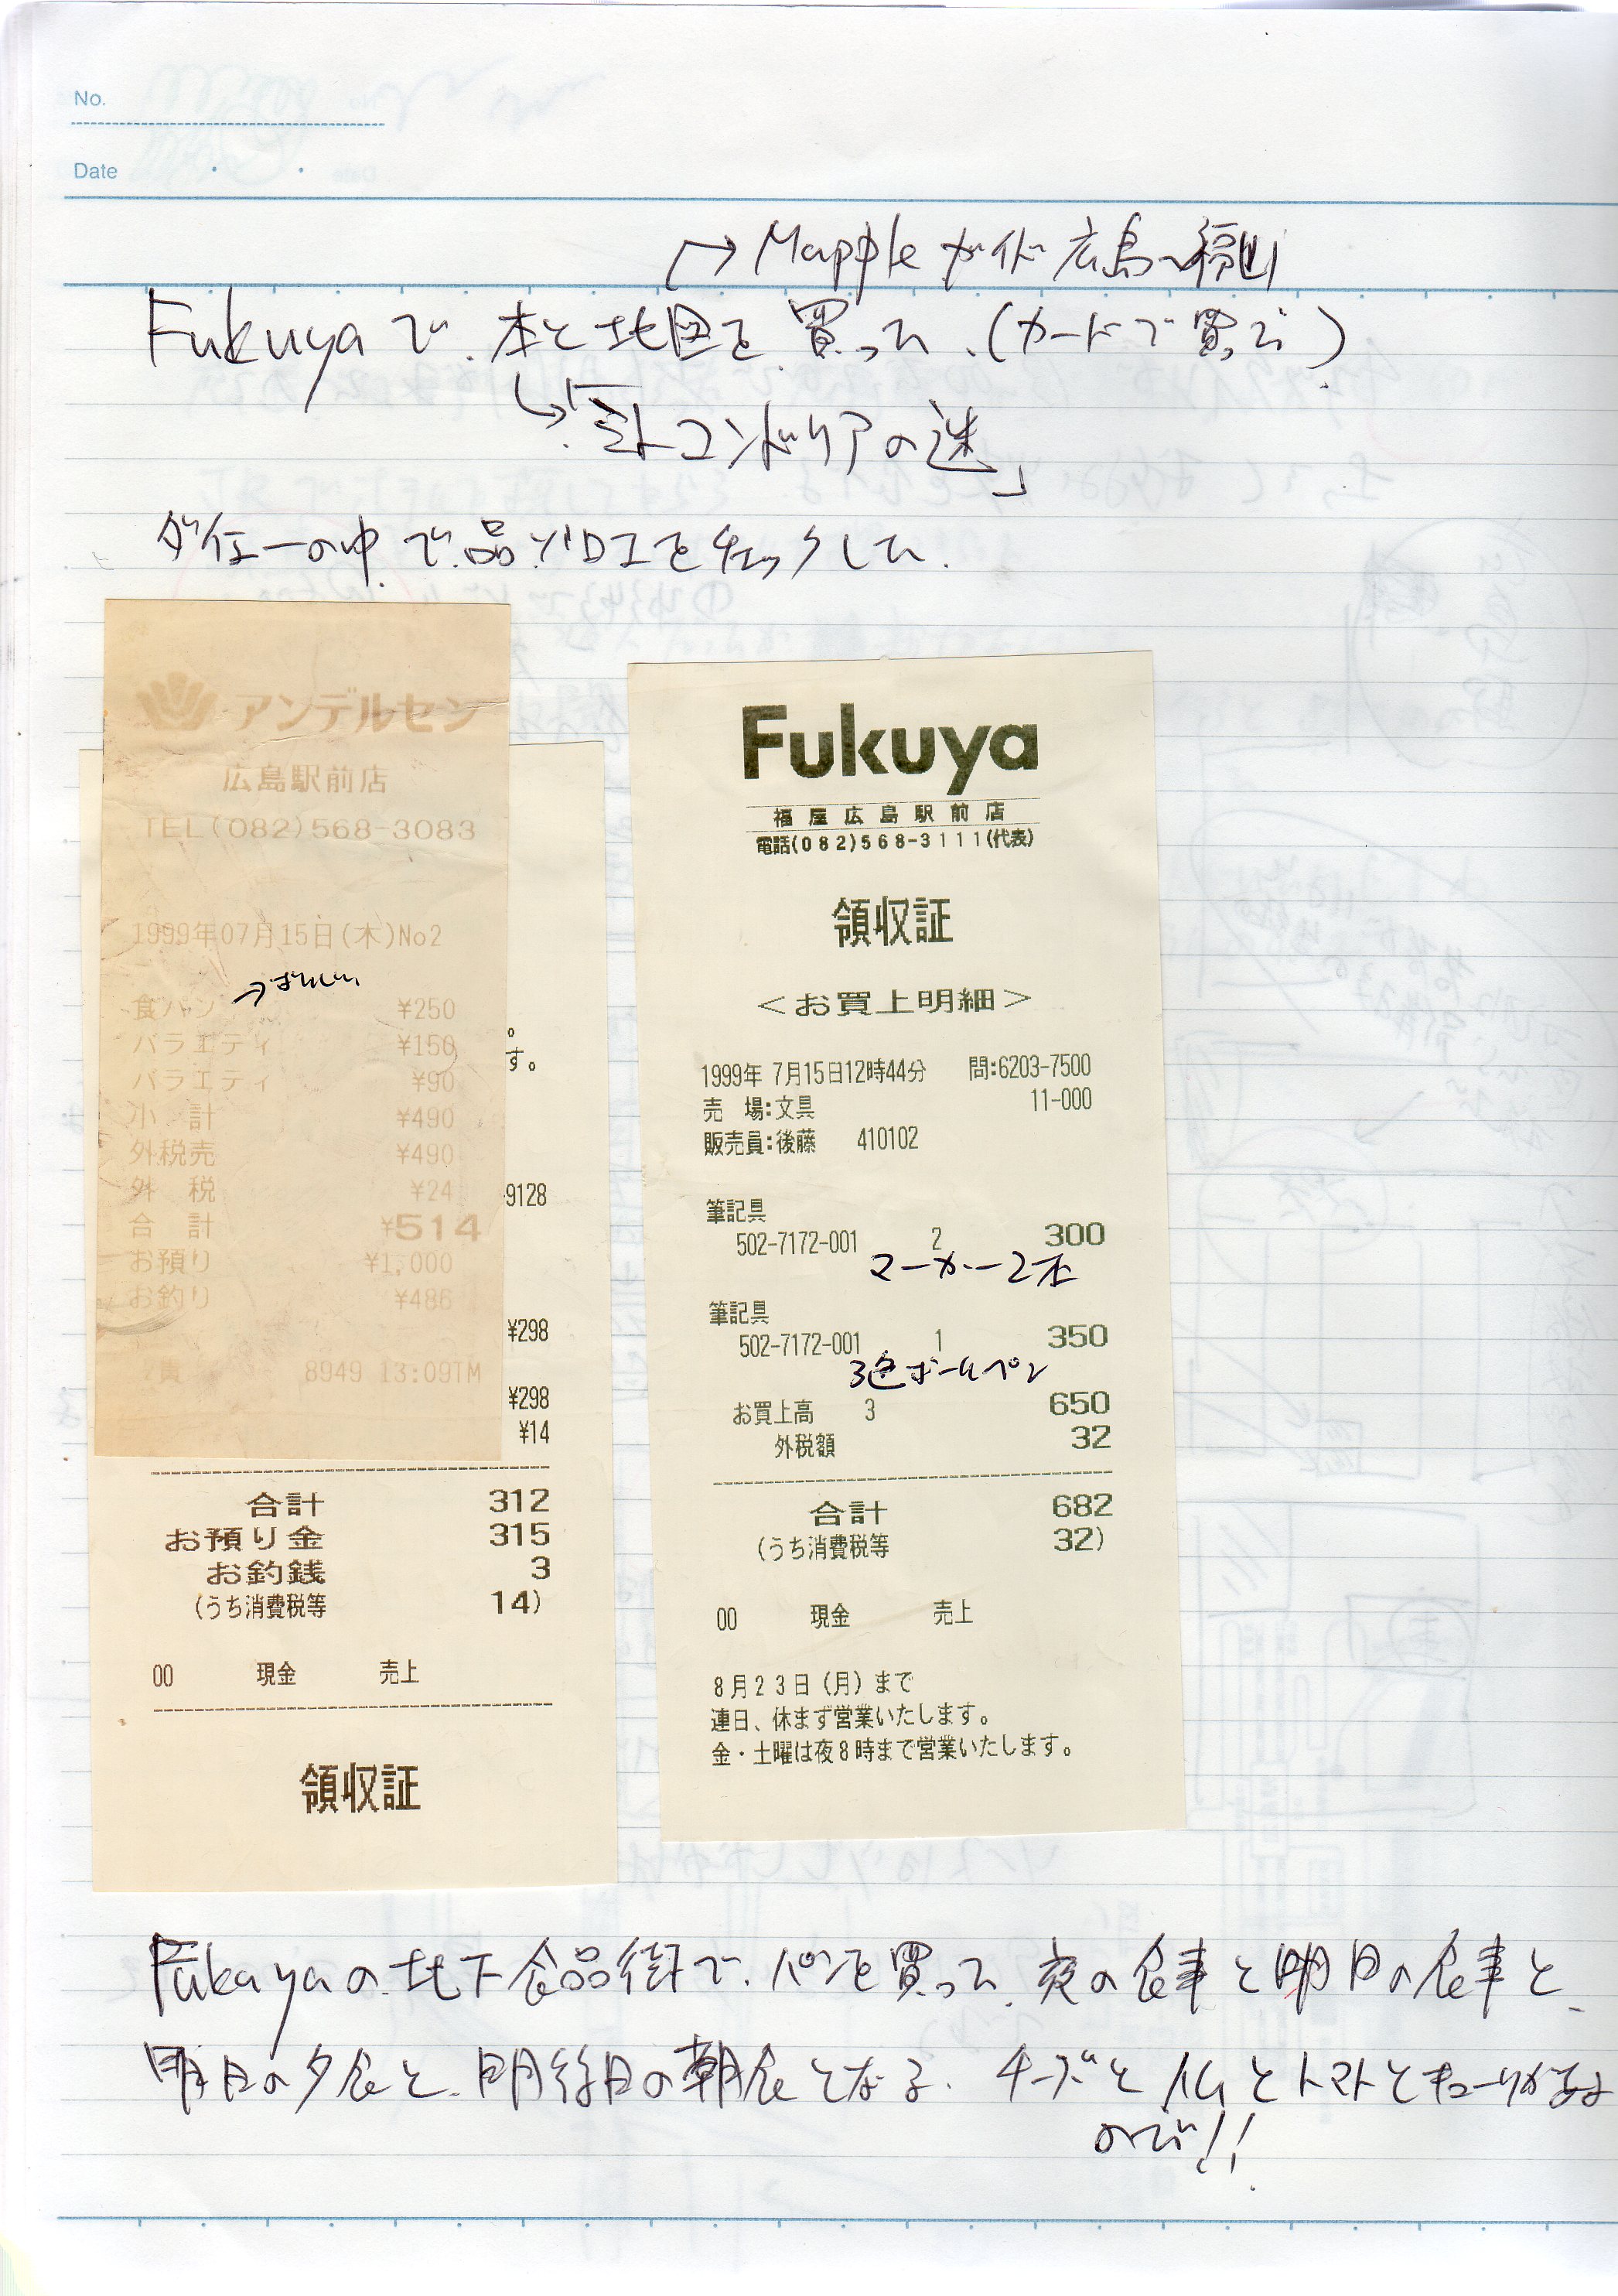 No.
Date
→ Mappleガイド 広島〜福山
Fukuyaで、本と地図を買った、(カードで買った)
→「ミトコンドリアの謎」
ダイエーの中で品ゾロエをチェックした、
アンデルセン
広島駅前店
TEL(082)568-3083
1999年07月15日(木)No2
→おいしい
食パン ¥250
バラエティ ¥150
バラエティ ¥90
小計 ¥490
外税売 ¥490
外税 ¥24
合計 ¥514
お預り ¥1,000
お釣り ¥486
責 8949 13:09TM
。
す。
-9128
¥298
¥298
¥14
合計 312
お預り金 315
お釣銭 3
(うち消費税等 14)
00 現金 売上
領収証
Fukuya
福屋広島駅前店
電話(082)568-3111(代表)
領収証
<お買上明細>
1999年 7月15日12時44分 問:6203-7500
売 場:文具 11-000
販売員:後藤 410102
筆記具
502-7172-001 2 300
マーカー2本
筆記具
502-7172-001 1 350
3色ボールペン
お買上高 3 650
外税額 32
合計 682
(うち消費税等 32)
00 現金 売上
8月23日(月)まで
連日、休まず営業いたします。
金・土曜は夜8時まで営業いたします。
Fukuyaの地下食品街で、パンを買った、夜の食事と明日の食事と、
明日の夕食と、明後日の朝食となる、チーズとハムとトマトとキューリがある
ので!!